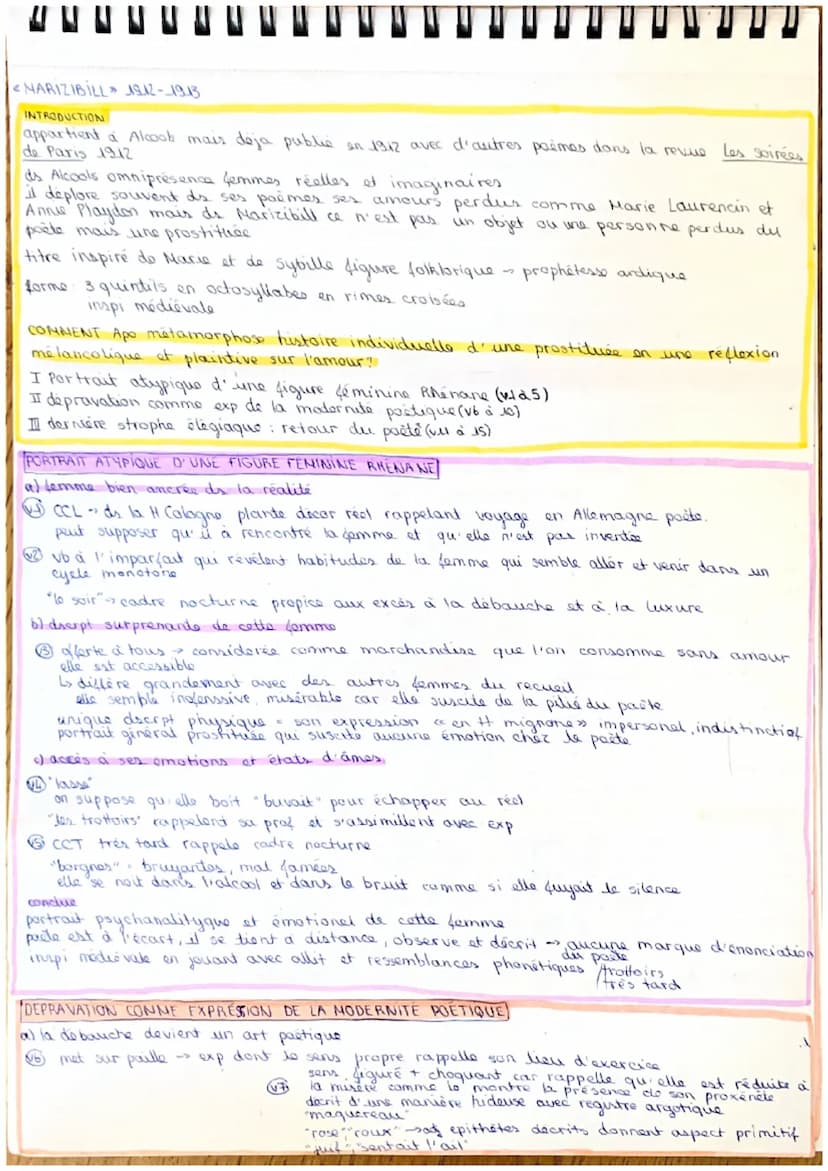 « MARIZIBILL » 1912-1913
INTRODUCTION
appartient à Alcools mais déja publié en 1912 avec d'autres poèmes dans la revue Les soirées
de Paris 1912
ds Alcools omniprésence femmes réelles et imaginaires
il déplore souvent ds ses poèmes ses amours perdus comme Marie Laurencin et
Annie Playdon mais ds Marizibill ce n'est pas un objet ou une personne perdus du
poète mais une prostituée
titre inspiré de Marie et de Sybille figure folklorique → prophétesse antique
forme : 3 quintils en octosyllabes en rimes croisées
inspi médiévale
COMMENT Apo métamorphose histoire individuelle d'une prostituée en une réflexion
mélancolique et plaintive sur l'amour ?
I Portrait atypique d'une figure féminine Rhénane (v1 à 5)
II dépravation comme exp de la modernité poétique (v6 à 10)
III dernière strophe élégiaque : retour du poète (v11 à 15)
PORTRAIT ATYPIQUE D'UNE FIGURE FEMININE RHENANE
a) femme bien ancrée ds la réalité
v1 CCL → ds la H Cologne, plante décor réel rappelant voyage en Allemagne poète.
peut supposer qu'il à rencontré la femme et qu'elle n'est pas inventée
v2 vb à l'imparfait qui révèlent habitudes de la femme qui semble aller et venir dans un
cycle monotone
"le soir" → cadre nocturne propice aux excès à la débauche et à la luxure
b) dscrpt surprenante de cette femme
v3 offerte à tous → considérée comme marchandise que l'on consomme sans amour
elle est accessible
↳ diffère grandement avec des autres femmes du recueil
elle semble inofenssive, misérable car elle suscite de la pitié du poète
unique dscrpt physique = son expression « en tt mignone » impersonel, indistinctif
portrait général prostituée qui suscite aucune émotion chez le poète
c) accès à ses émotions et états d'âmes
v4 "lasse"
on suppose qu'elle boit "buvait" pour échapper au réel
"les trottoirs" rappelent sa prof et s'assimillent avec exp
v5 CCT très tard rappele cadre nocturne
"borgnes" = bruyantes, mal famées
elle se noit dans l'alcool et dans le bruit comme si elle fuyait le silence
conclue
portrait psychanalityque et émotionel de cette femme
poète est à l'écart, il se tient a distance, observe et décrit → aucune marque d'énonciation
du poète
inspi médiévale en jouant avec allit et ressemblances phonétiques /trottoirs
/très tard
DEPRAVATION COMME EXPRESSION DE LA MODERNITE POÉTIQUE
a) la débauche devient un art poétique
v6 met sur paille → exp dont le sens propre rappelle son lieu d'exercice
sens figuré + choquant car rappelle qu'elle est réduite à
v7 la misère comme le montre la présence de son proxénète
décrit d'une manière hideuse avec registre argotique
"maquereau"
"rose", "roux" → adj épithètes décrits donnent aspect primitif
"juif", "sentait l'ail"